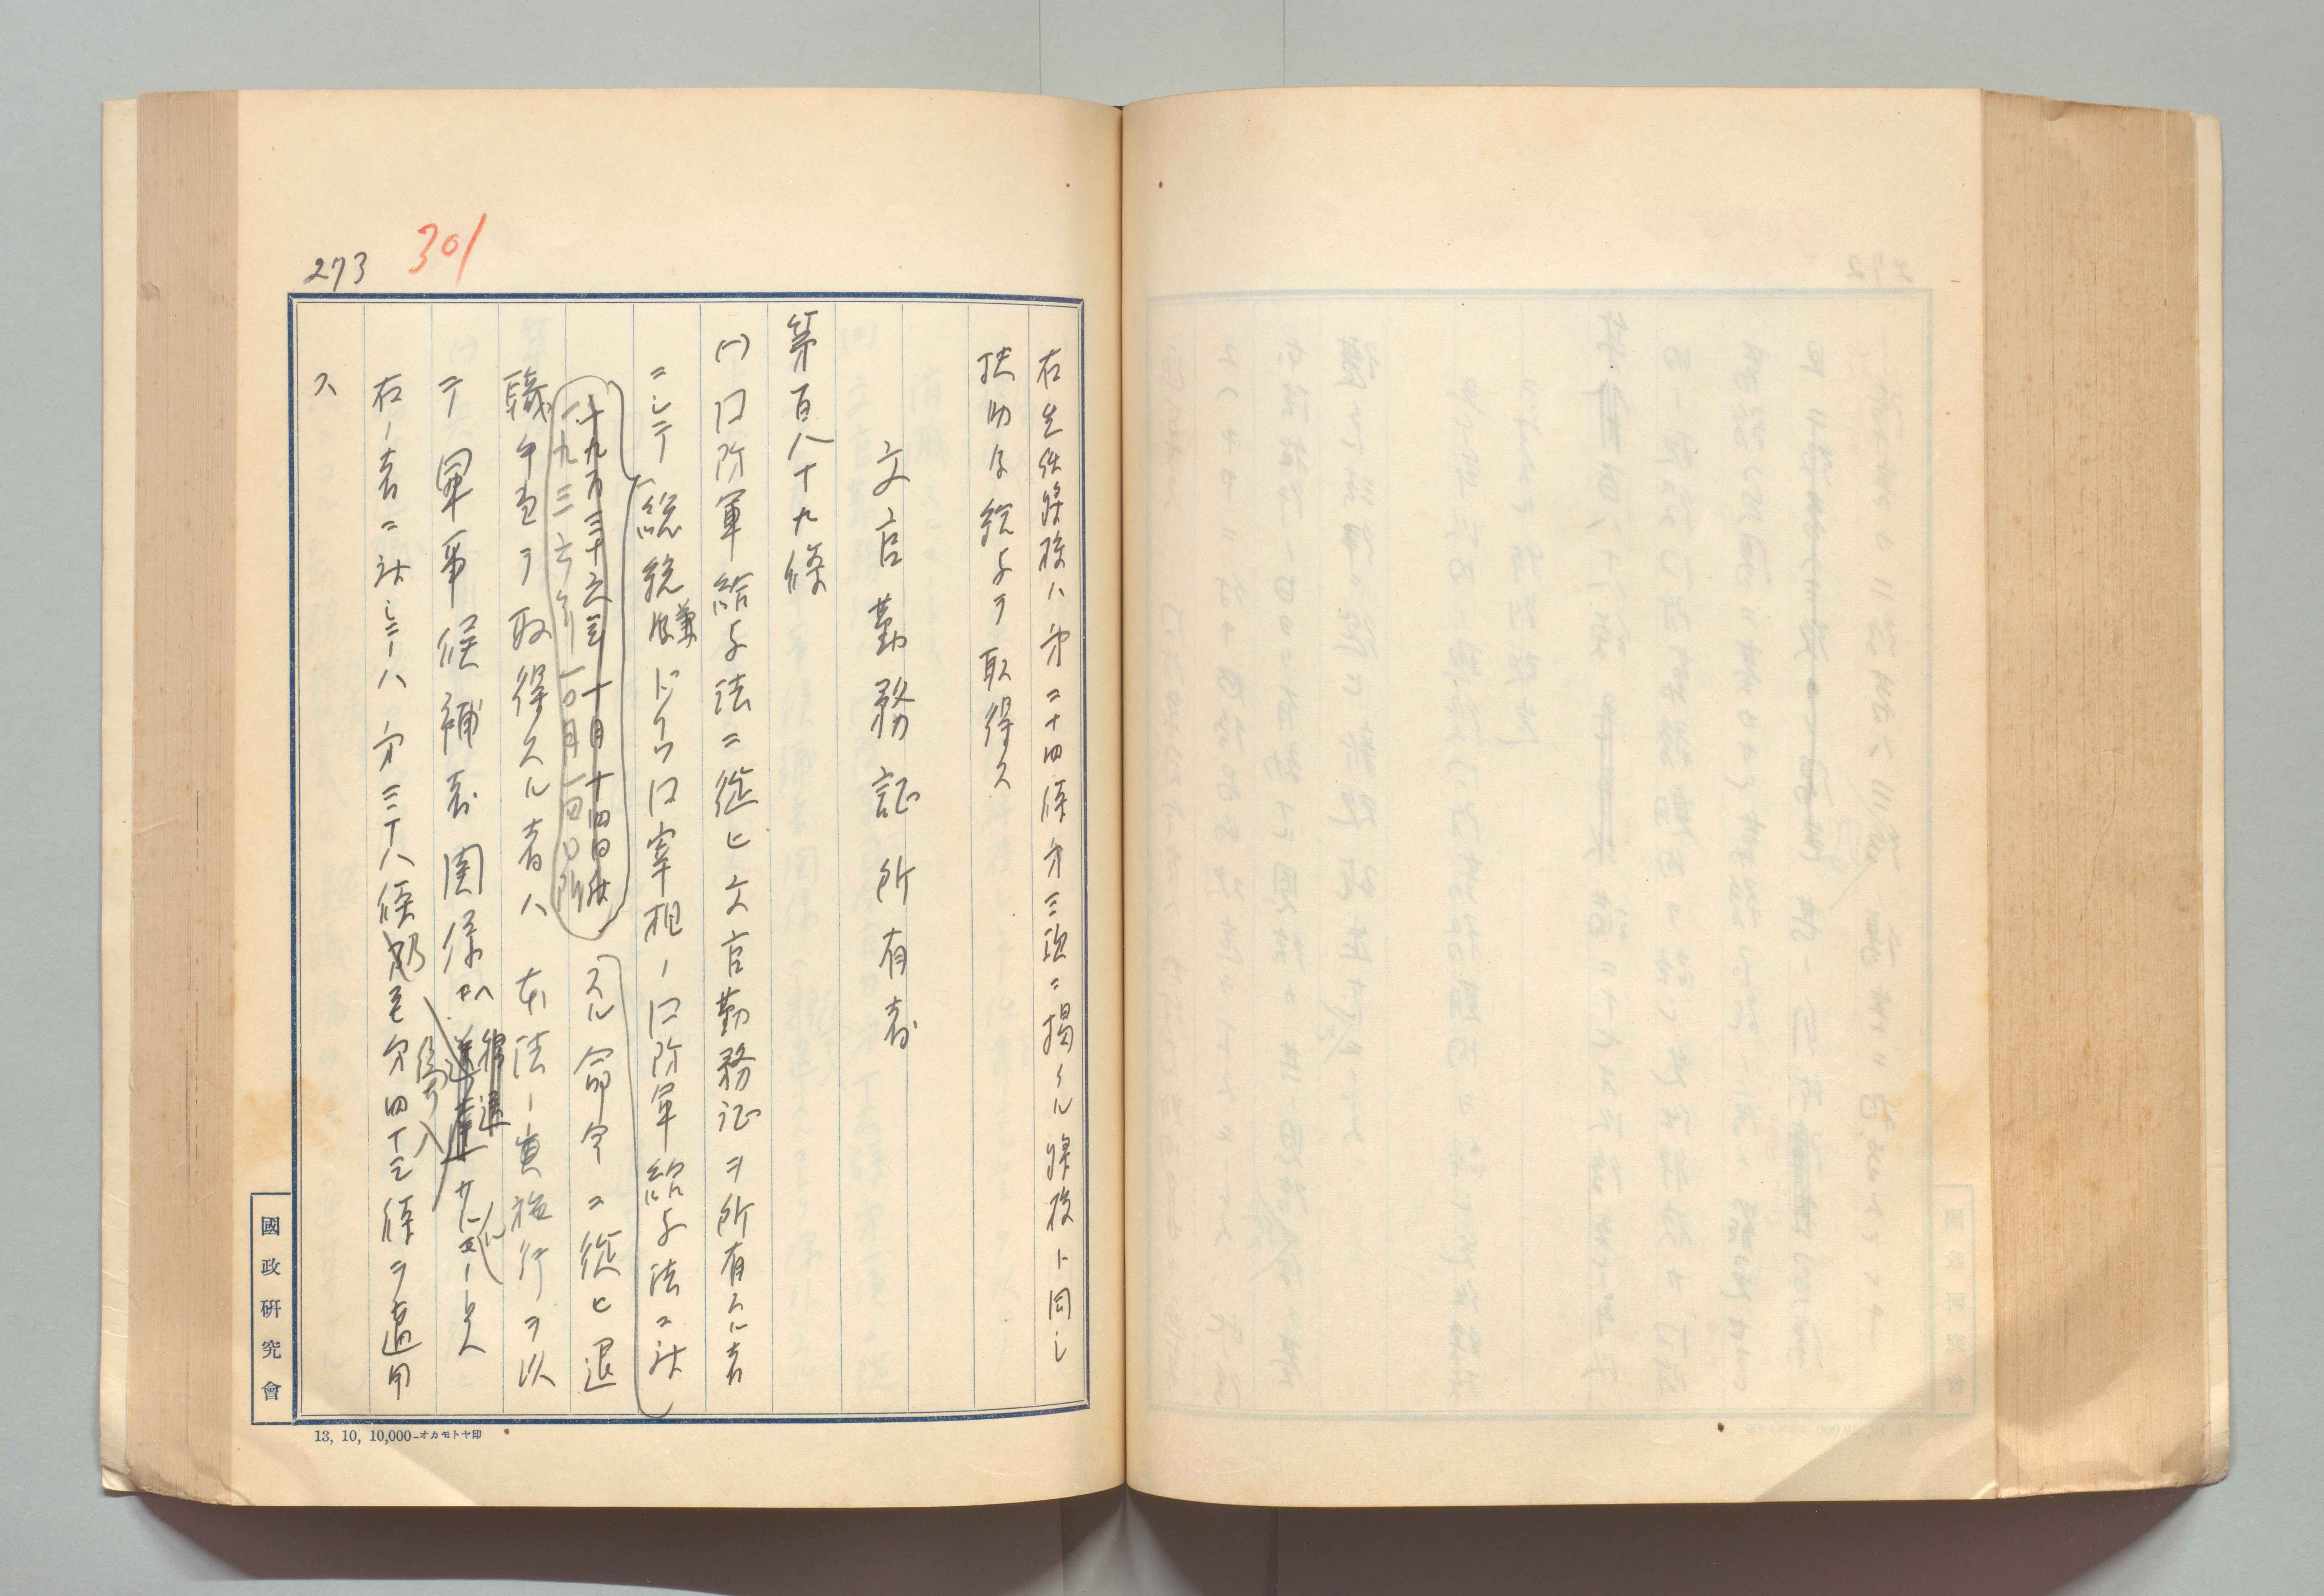 273
301
右生徒將校ハ第二十四條第三項ニ掲クル將校ト同シ
扶助給与ヲ取得ス
文官勤務証所有者
第百八十九條
(一)口防軍給与法ニ從ヒ文官勤務証ヲ所有スル者
ニシテ総統兼ドクワ口宰相ノ口防軍給与法ニ対
スル命令ニ從ヒ退
一九三六年一〇月一四日附
職年金ヲ取得スル者ハ本法ノ実施行ヲ以
テ軍事候補者関係カ
編入
右ノ者ニ対シテハ第三十八條乃至第四十三條ヲ適用
ス
國政研究會
13, 10, 10,000-オカモトヤ印